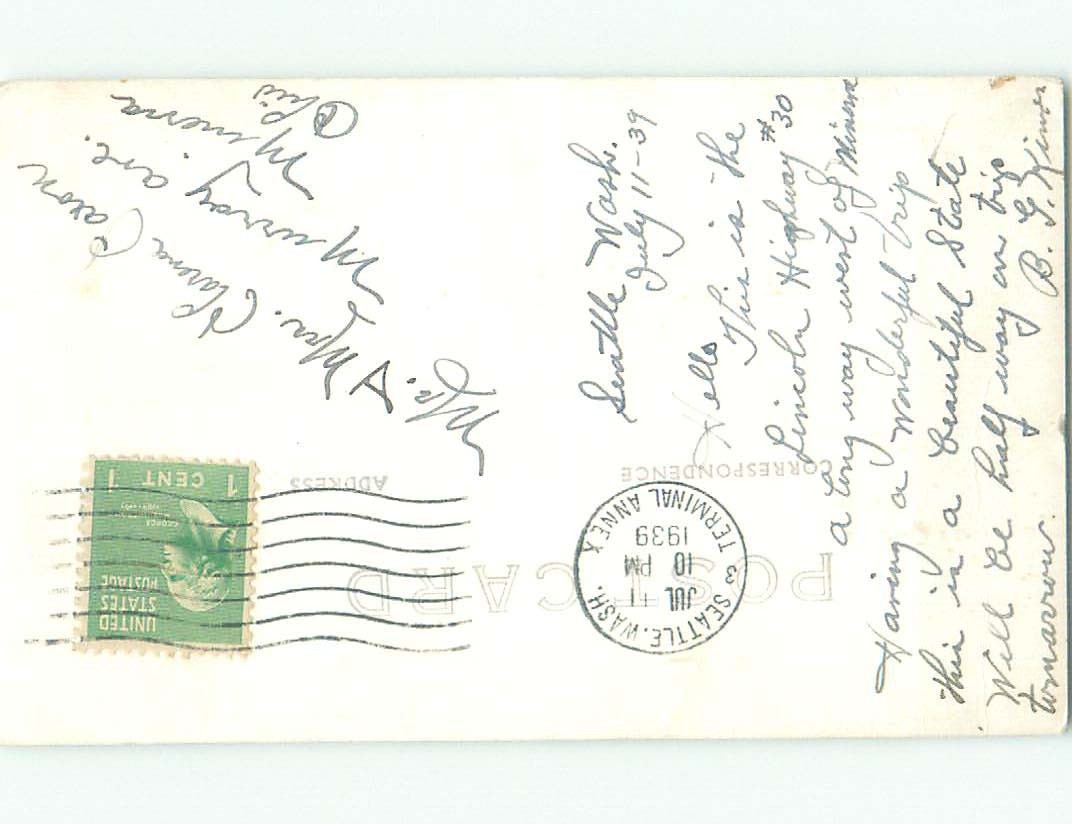 UNITED
STATES
POSTAGE
GEORGE
1 CENT 1
SEATTLE, WASH.
JUL 11
10 PM
1939
3 TERMINAL ANNEX
POST CARD
CORRESPONDENCE
ADDRESS
Seattle Wash.
July 11-39
Hello
This is the
Lincoln Highway #30
a long way west of Minerva
Having a wonderful trip
this is a beautiful State
Will be half way on trip
tomarrow.
B. G.
Mr.
& Mrs.
Murray ave.
Minerva
Ohio